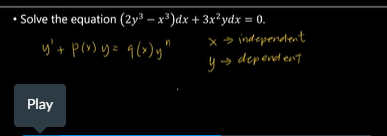 • Solve the equation (2y³ – x³)dx + 3x²ydx = 0.
y' + p(x) y = q(x) yⁿ
x → independent
y → dependent
Play